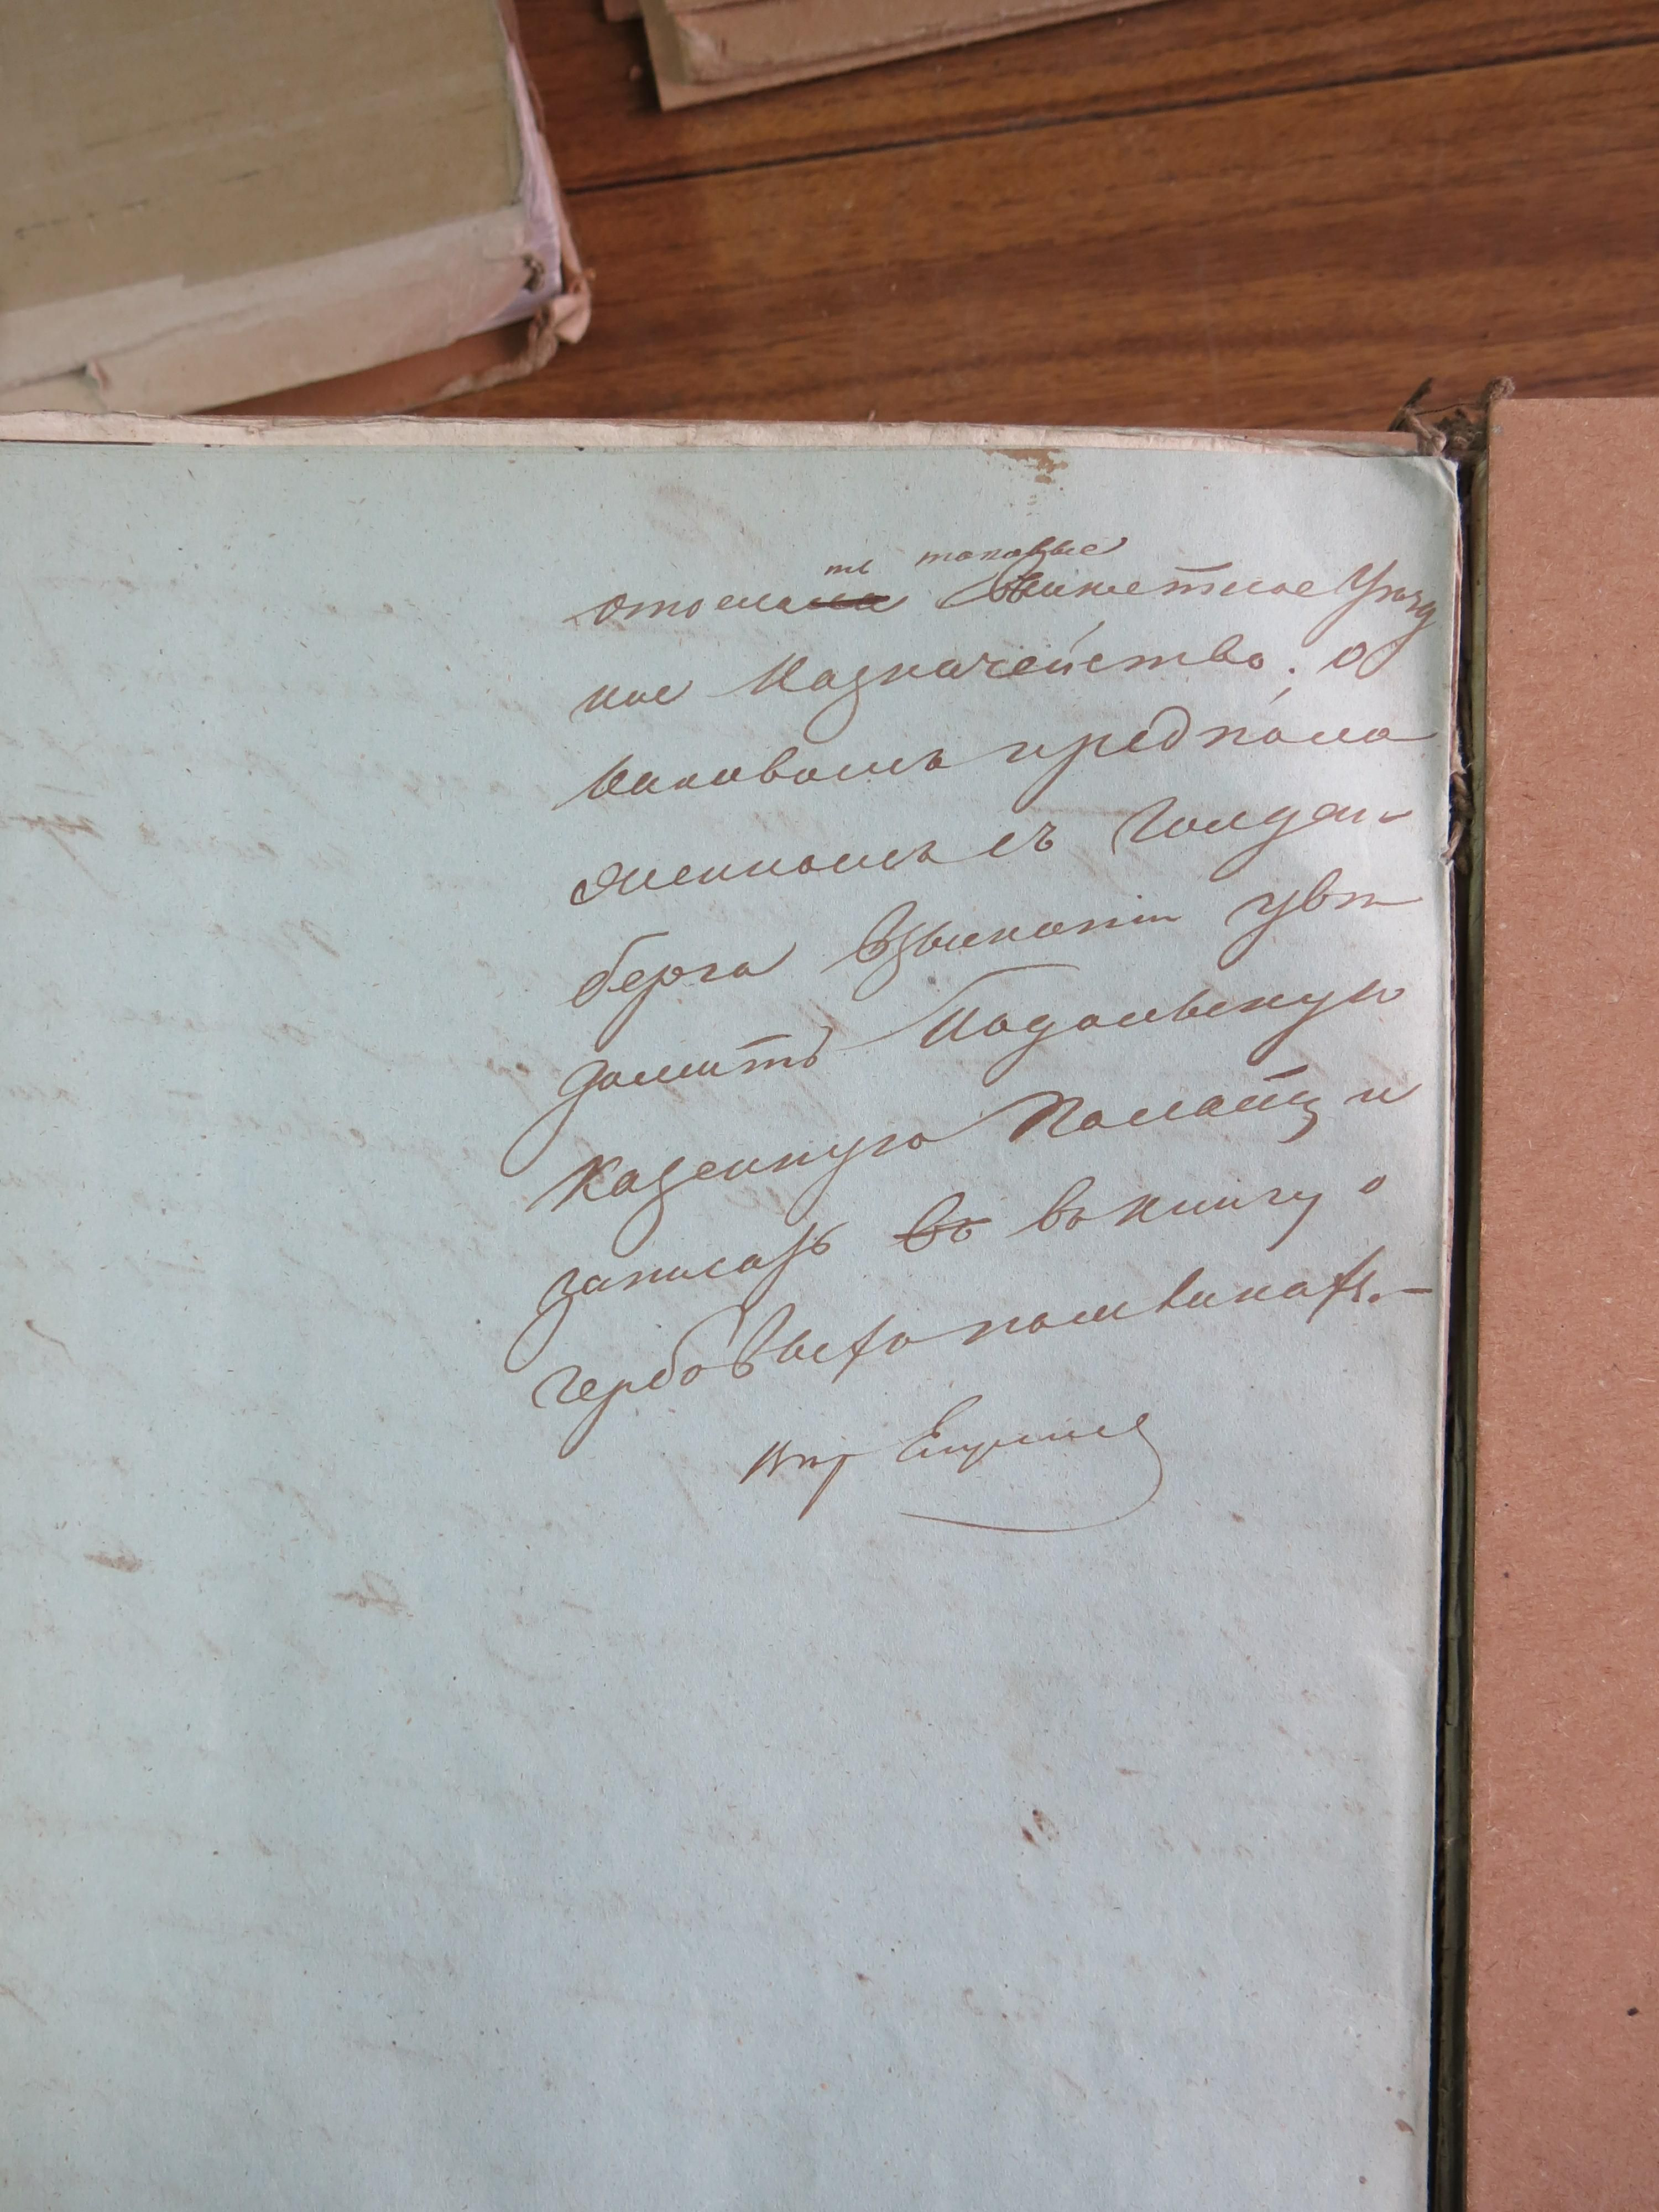 ть таковые
отосла въ мѣстное Уѣзд
ное Казначейство. о
таковомъ предпола
женномъ съ Гольден-
берга взысканіи увѣ
домить Подольскую
Казенную Палату и
записать въ въ книгу о
гербовыхъ пошлинахъ.-